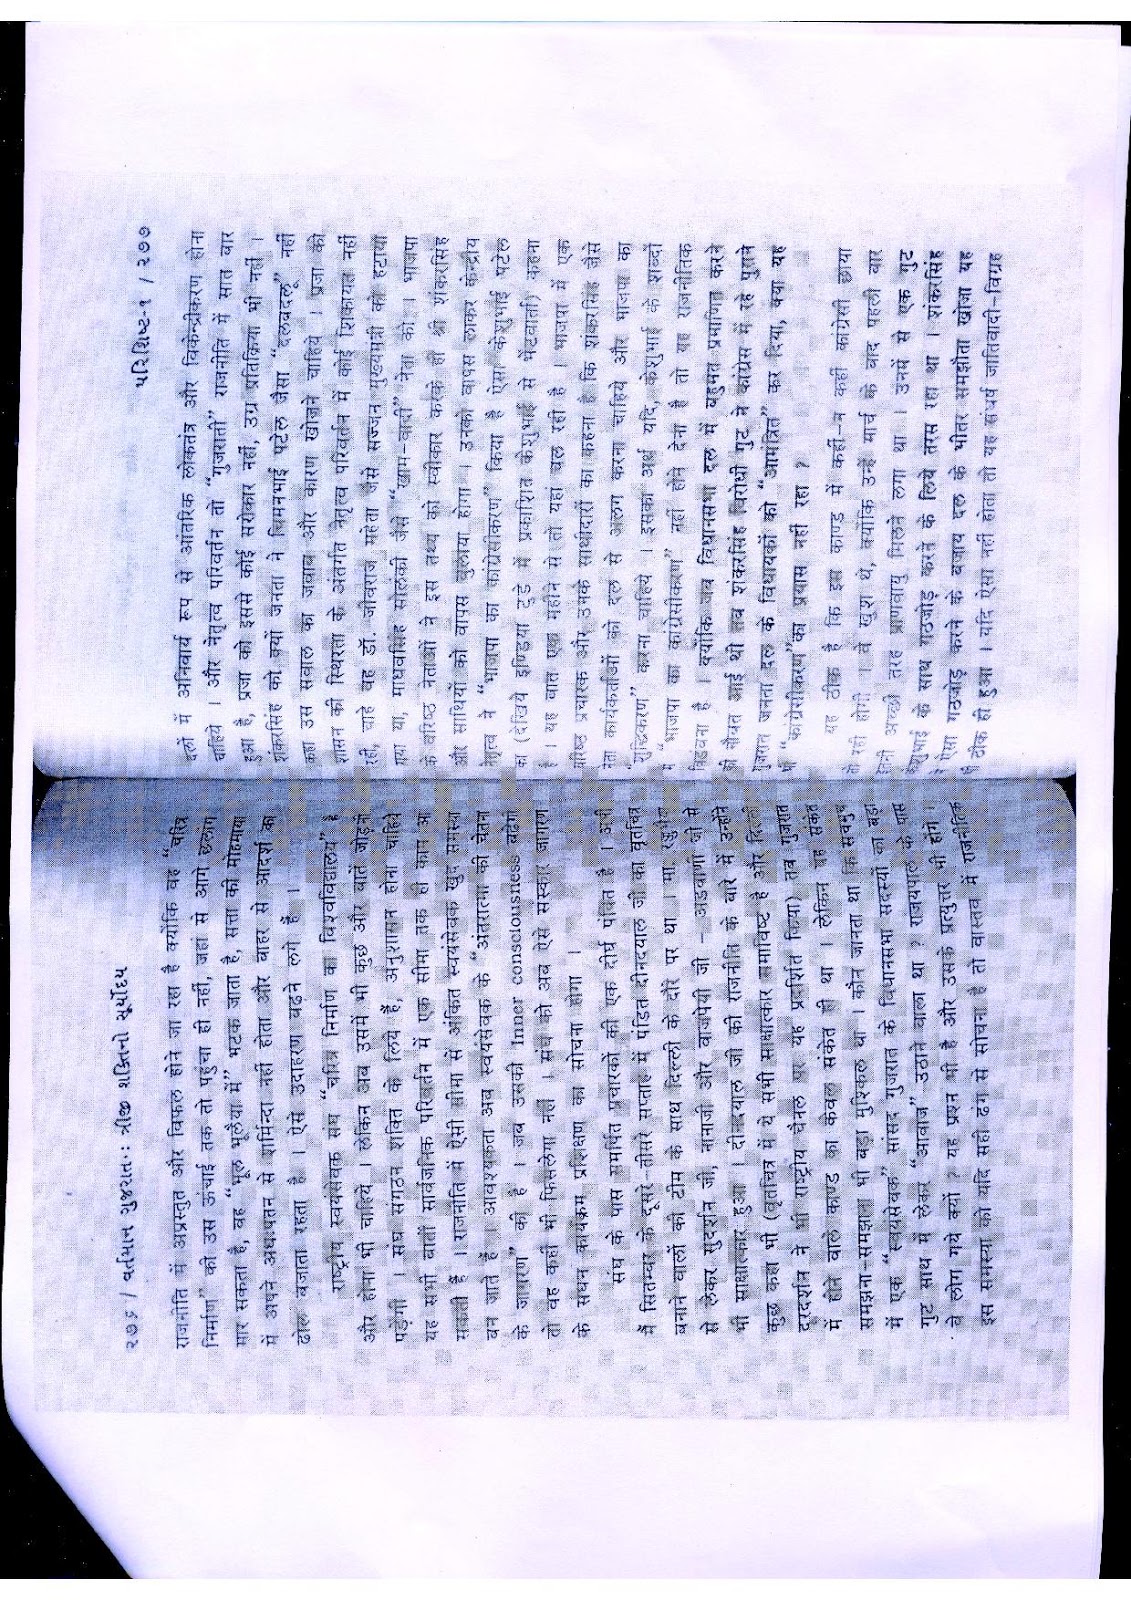 ૨૭૬ / વર્તમાન ગુજરાત : ત્રીજી શક્તિનો સૂર્યોદય
राजनीति में अप्रस्तुत और विफल होने जा रहा है क्योंकि वह “चरित्र
निर्माण” की उस ऊंचाई तक तो पहुंचा ही नहीं, जहां से आगे छलांग
मार सकता है, वह “भूल भूलैया में” भटक जाता है, सत्ता की मोहमाया
में अपने अधःपतन से शर्मिन्दा नहीं होता और बाहर से आदर्श का
ढोल बजाता रहता है । ऐसे उदाहरण बढ़ने लगे हैं ।
राष्ट्रीय स्वयंसेवक संघ “चरित्र निर्माण का विश्वविद्यालय” है
और होना भी चाहिये । लेकिन अब उसमें भी कुछ और बातें जोड़नी
पड़ेगी । संघ संगठन शक्ति के लिये है, अनुशासन होना चाहिये
यह सभी बातें सार्वजनिक परिवर्तन में एक सीमा तक ही काम आ
सकती हैं । राजनीति में ऐसी सीमा से अंकित स्वयंसेवक खुद समस्या
बन जाते हैं । आवश्यकता अब स्वयंसेवक के “अंतरात्मा की चेतना
के जागरण” की है । जब उसकी Inner consciousness बढ़ेगी
तो वह कहीं भी फिसलेगा नहीं । संघ को अब ऐसे संस्कार जागरण
के सघन कार्यक्रम, प्रशिक्षण का सोचना होगा ।
संघ के पास समर्पित प्रचारकों की एक दीर्घ पंक्ति है । अभी
मैं सितम्बर के दूसरे-तीसरे सप्ताह में पंडित दीनदयाल जी का वृत्तचित्र
बनाने वालों की टीम के साथ दिल्ली के दौरे पर था ।
से लेकर सुदर्शन जी, नानाजी और वाजपेयी जी - आडवाणी जी से
भी साक्षात्कार हुआ । दीनदयाल जी की राजनीति के बारे में उन्होंने
कुछ कहा भी (वृत्तचित्र में ये सभी साक्षात्कार समाविष्ट है और दिल्ली
दूरदर्शन ने भी राष्ट्रीय चैनल पर यह प्रदर्शित किया) तब गुजरात
में होने वाले काण्ड का केवल संकेत ही था । लेकिन यह संकेत
समझना-समझाना भी बड़ा मुश्किल था । कौन जानता था कि सचमुच
में एक “स्वयंसेवक” सांसद गुजरात के विधानसभा सदस्यों का बड़ा
गुट साथ में लेकर “आवाज” उठाने वाला था ? राज्यपाल के पास
वे लोग गये क्यों ? यह प्रश्न भी है और उसके प्रत्युत्तर भी होंगे ।
इस समस्या को यदि सही ढंग से सोचना है तो वास्तव में राजनीतिक
પરિશિષ્ટ-૧ / ૨૭૭
दलों में अनिवार्य रूप से आंतरिक लोकतंत्र और विकेन्द्रीकरण होना
चाहिये । और नेतृत्व परिवर्तन तो “गुजराती” राजनीति में सात बार
हुआ है, प्रजा को इससे कोई सरोकार नहीं, उग्र प्रतिक्रिया भी नहीं ।
शंकरसिंह को क्यों जनता ने चिमनभाई पटेल जैसा “दलबदलू” नहीं
कहा उस सवाल का जवाब और कारण खोजने चाहिये । प्रजा को
शासन की स्थिरता के अंतर्गत नेतृत्व परिवर्तन में कोई शिकायत नहीं
रही, चाहे वह डॉ. जीवराज महेता जैसे सज्जन मुख्यमंत्री को हटाया
गया या, माधवसिंह सोलंकी जैसे “खाम-वादी” नेता को । भाजपा
के वरिष्ठ नेताओं ने इस तथ्य को स्वीकार करके ही श्री शंकरसिंह
और साथियों को वापस बुलाया होगा । उनको वापस लाकर केन्द्रीय
नेतृत्व ने “भाजपा का कांग्रेसीकरण” किया है ऐसा केशुभाई पटेल
का (देखिये इण्डिया टुडे में प्रकाशित केशुभाई से भेंटवार्ता) कहना
है । यह बात एक महीने से तो यहां चल रही है । भाजपा में एक
वरिष्ठ प्रचारक और उनके साझीदारों का कहना है कि शंकरसिंह जैसे
नेता कार्यकर्ताओं को दल से अलग करना चाहिये और भाजपा का
“शुद्धिकरण” करना चाहिये । इसका अर्थ यदि, केशुभाई के शब्दों
में “भाजपा का कांग्रेसीकरण” नहीं होने देना है तो यह राजनीतिक
विडंबना है । क्योंकि जब विधानसभा दल में बहुमत प्रमाणित करने
की नौबत आई थी तब शंकरसिंह विरोधी गुट ने कांग्रेस में रहे पुराने
गुजरात जनता दल के विधायकों को “आमंत्रित” कर दिया, क्या यह
भी “कांग्रेसीकरण” का प्रयास नहीं रहा ?
यह ठीक है कि इस काण्ड में कहीं-न कहीं कांग्रेसी छाया
तो रही होगी । वे खुश थे, क्योंकि उन्हें मार्च के बाद पहली बार
इतनी अच्छी तरह प्राणवायु मिलने लगा था । उनमें से एक गुट
केशुभाई के साथ गठजोड़ करने के लिये तरस रहा था । शंकरसिंह
ने ऐसा गठजोड़ करने के बजाय दल के भीतर समझौता खोजा यह
भी ठीक ही हुआ । यदि ऐसा नहीं होता तो यह संघर्ष जातिवादी-विग्रह